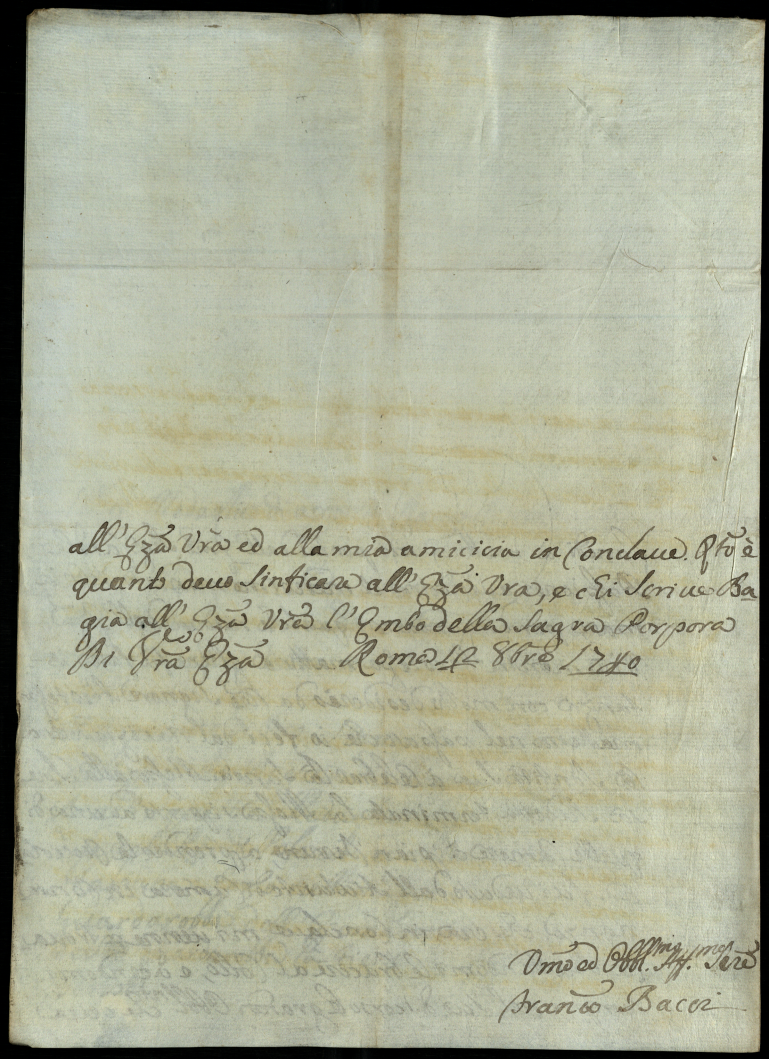 all' Ezza Vra ed alla mia amicicia in Conclave. Qto è
quanto devo sinficare all' Ezza Vra, e chi scrive Ba
gia all' Ezza Vra l' Embo della Sagra Porpora
Di Vra Ezza Roma 12 8bre 1740
Umo ed Obbl.mo Aff.mo Sere
Franco Bacci